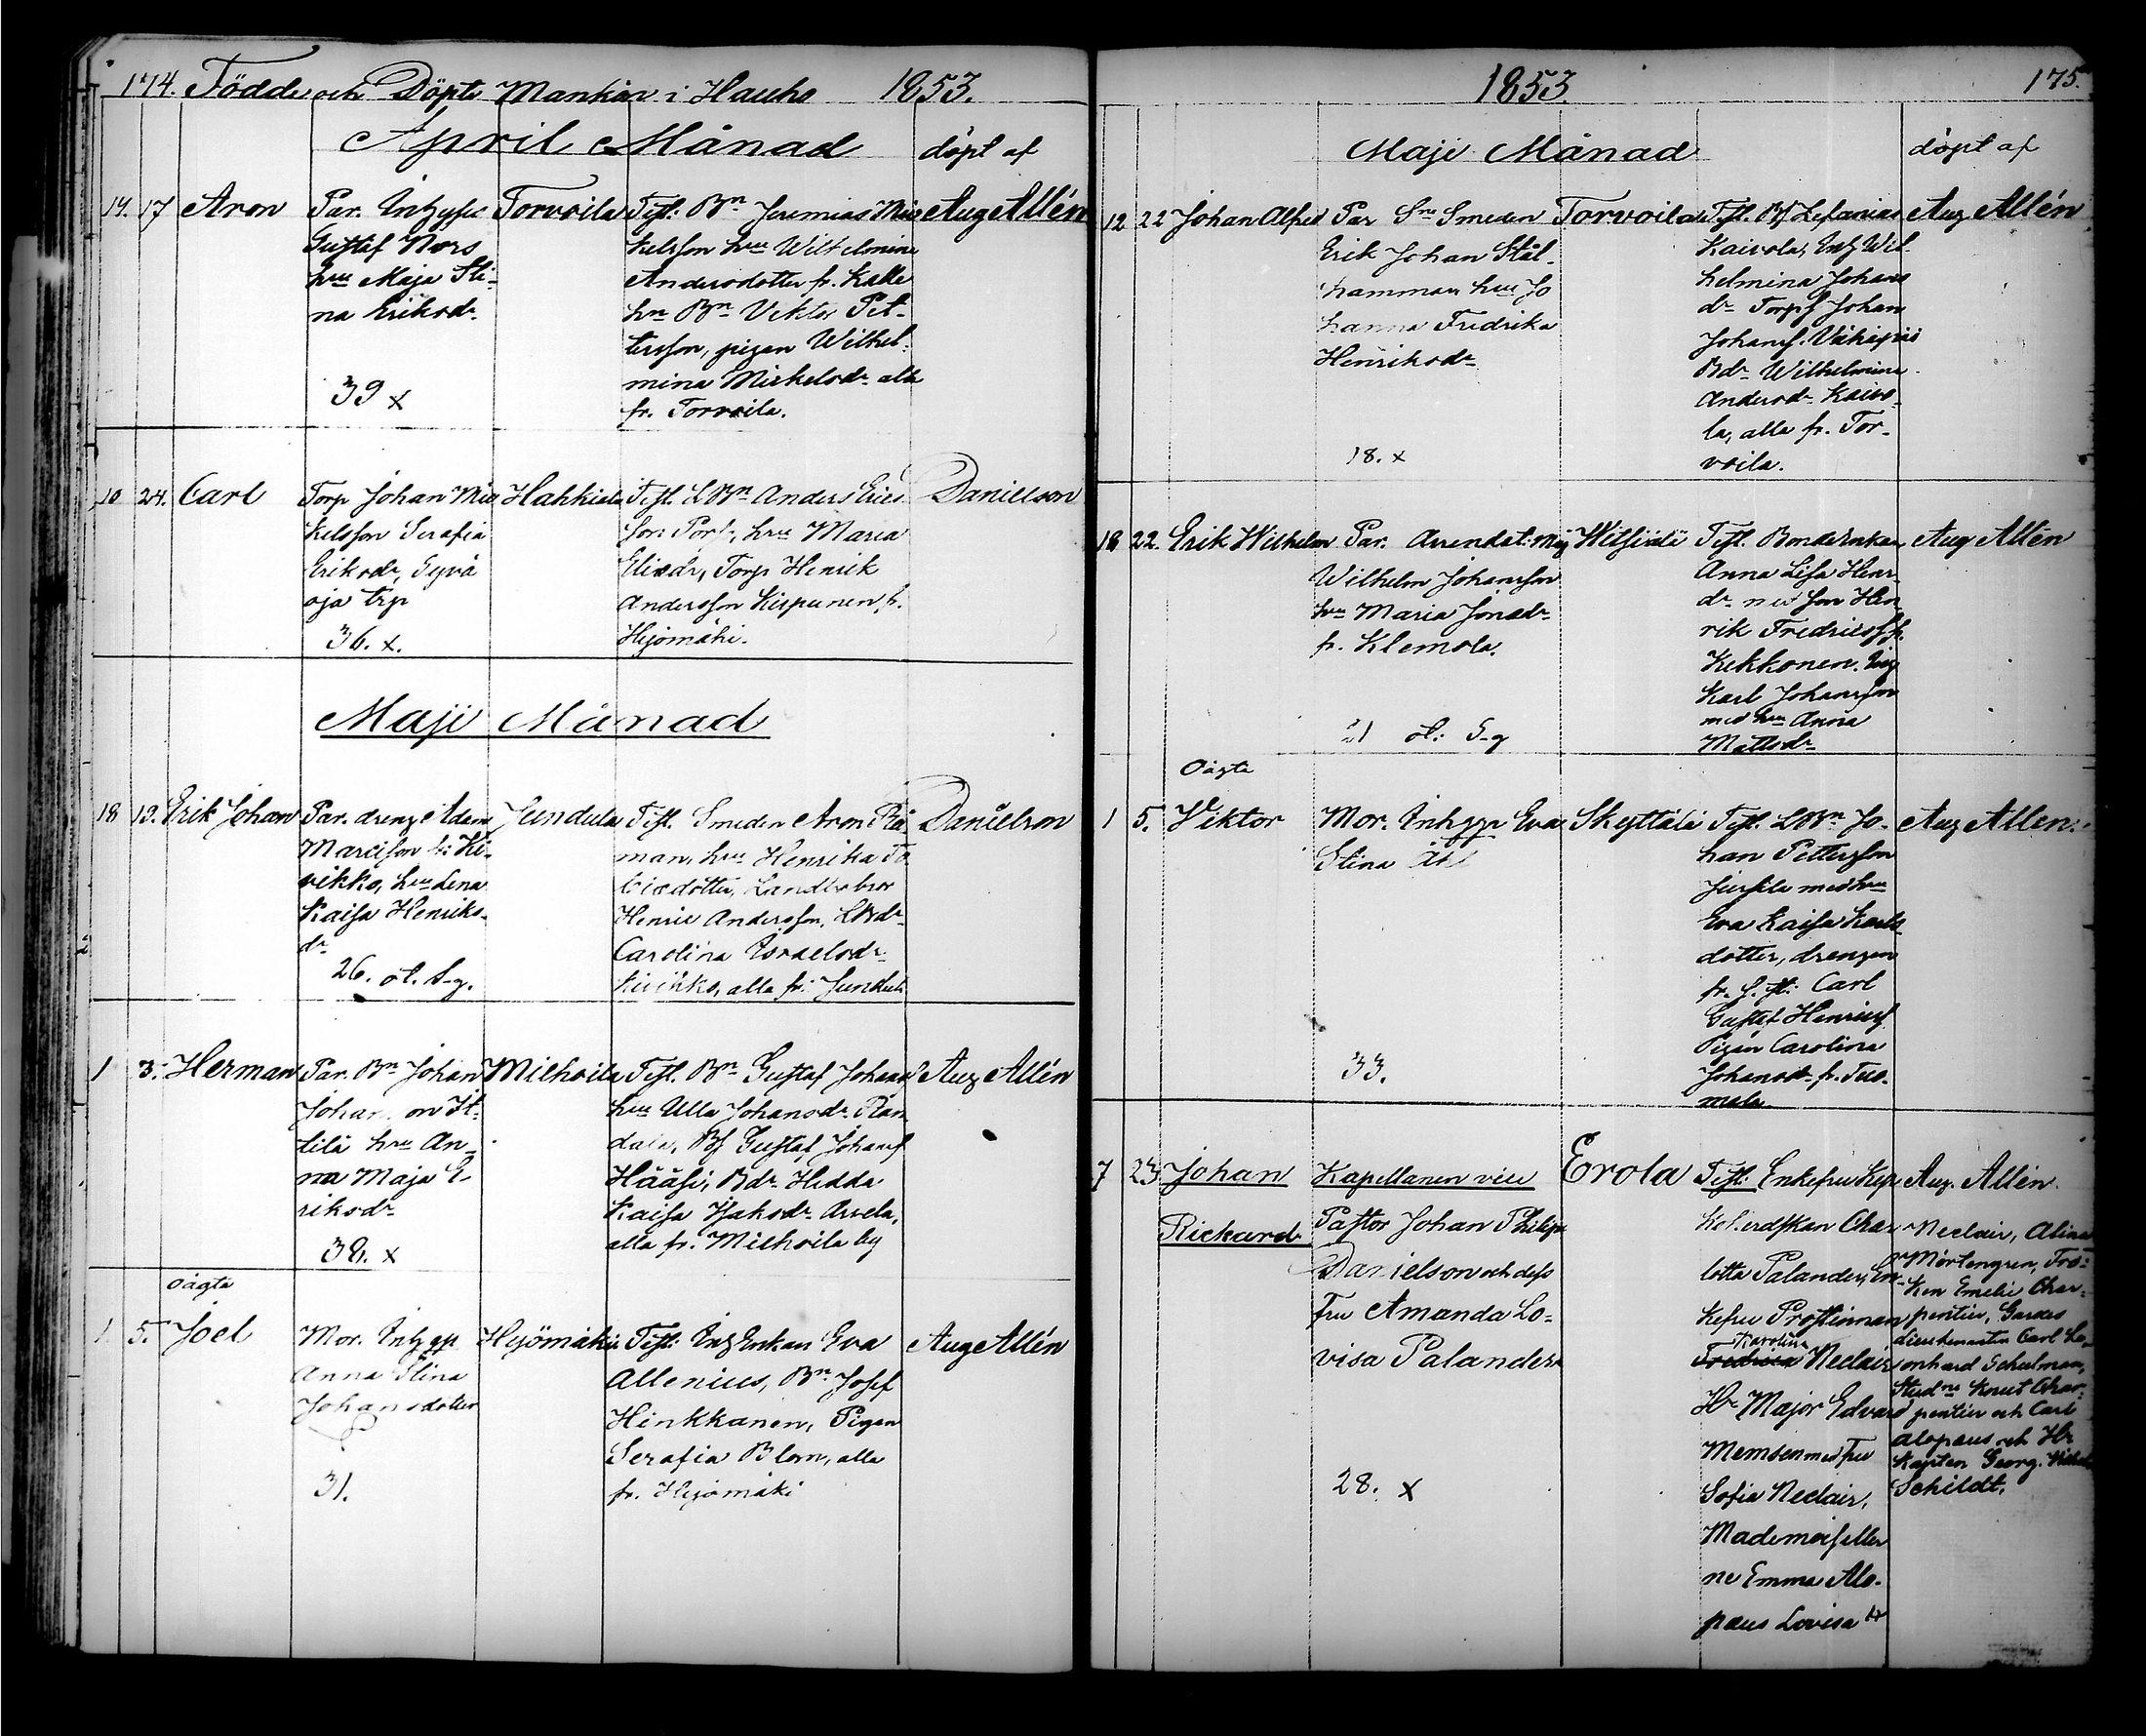 174. Födde och Döpte Mankön i Hauho 1853.
April Månad döpt af
14. 17 Aron
Par. Inhyses
Gustaf Nors
hru Maja Sti-
na Eriksdr
39 x
Torvoila
Test: Bn Jeremias Mic
kelsson hru Wilhelmina
Andersdotter fr. Kalle
hn Bn Viktor Pet-
tersson, pigan Wilhel-
mina Mickelsdr alla
fr. Torvoila.
Aug Allén
10 24. Carl
Torp Johan Mic
kelsson Serafia
Eriksdr, Syvä
oja trp
36. x.
Hahkiala
Test. LBn Anders Erics
son Hru Maria
Eliædr, Torp Henrik
Andersson fr.
Hyömäki.
Danielson
Maji Månad
18 19. Erik Johan
Par. dreng Adam
Marcisson fr: Ki-
vikko, hru Lena
Kaisa Henriks-
dr
26. öl. S-g.
Jundula
Test. Smeden Aron Rå
man, hru Henrika To
biædotter, Landtbebror
Henric Andersson, LBdr
Carolina Israelsdr
Kivikko, alla fr: Jundula
Danielson
1 3. Herman
Par. Bn Johan
Johansson It-
tilä hru An-
na Maja E-
riksdr
38. x
Miehoila
Test. Bn Gustaf Johans
hru Ulla Johansdr Ran
dala, Bs Gustaf Johans
Hääsi, Bdr Hedda
Kaisa Isaksdr Arvela,
alla fr. Miehoila by
Aug Allén
oägta
1. 5. Joel
Mor. Inhyp
Anna Stina
Johansdotter
31.
Hyömäki
Test: Inh Enkan Eva
Allenius, Bn Josef
Hinkkanen, Pigan
Serafia Blom, alla
fr. Hyömäki
Aug Allén
1853. 175.
Maji Månad döpt af
12 22 Johan Alfred
Par Sn Smeden
Erik Johan Stål-
hammar hru Jo
hanna Fredrika
Henriksdr
18. x
Torvoila
Test. Bs Zefanias
Kaivola, Inh Wil-
helmina Johans
dr Torps Johan
Johans. Vähäpiä
Bdr Wilhelmina
Andersdr Kaivo-
la, alla fr. Tor-
voila.
Aug Allén
18 22. Erik Wilhelm
Par. Arrendat:
Wilhelm Johansson
hru Maria Jonædr
fr. Klemola.
21 öl: S-g
Witsiälä
Test. Bonde Enkan
Anna Lisa Henr-
dr med son Hen
rik Fredricss fr.
Kekkonen. Inh
Karl Johansson
med hru Anna
Mattsdr
Aug Allén
Oägta
1 5. Viktor
Mor. Inhyp Eva
Stina
33.
Skyttälä
Test. LBn Jo-
han Pettersson
Jussila med hru
Eva Kaisa Karls
dotter, drengen
fr. s. st: Carl
Gustaf Henrics
Pigan Carolina
Johansdr fr. Tuo-
mala.
Aug Allén.
7 23 Johan
Rickard
Kapellanen vice
Pastor Johan Philip
Danielson och dess
Fru Amanda Lo-
visa Palander
28. x
Erola
Test: Enkefru Kap
Charlotta Palander, En-
kefru Prostinnan
Karolina
Fredrica Neclair
Hr Major Edvard
Memsen med Fru
Sofia Neclair,
Mademoiseller
ne Emma Alo-
paus Lovisa
Aug. Allén.
Neclair, Alina
Mörtengren, Frö-
ken Emelie Char-
pentier, Gardes
lieutenanten Carl Le-
onhard Schulman,
Studne Knut Char-
pentier och Carl
Alopaus och Hr
Kapten Georg
Schildt.